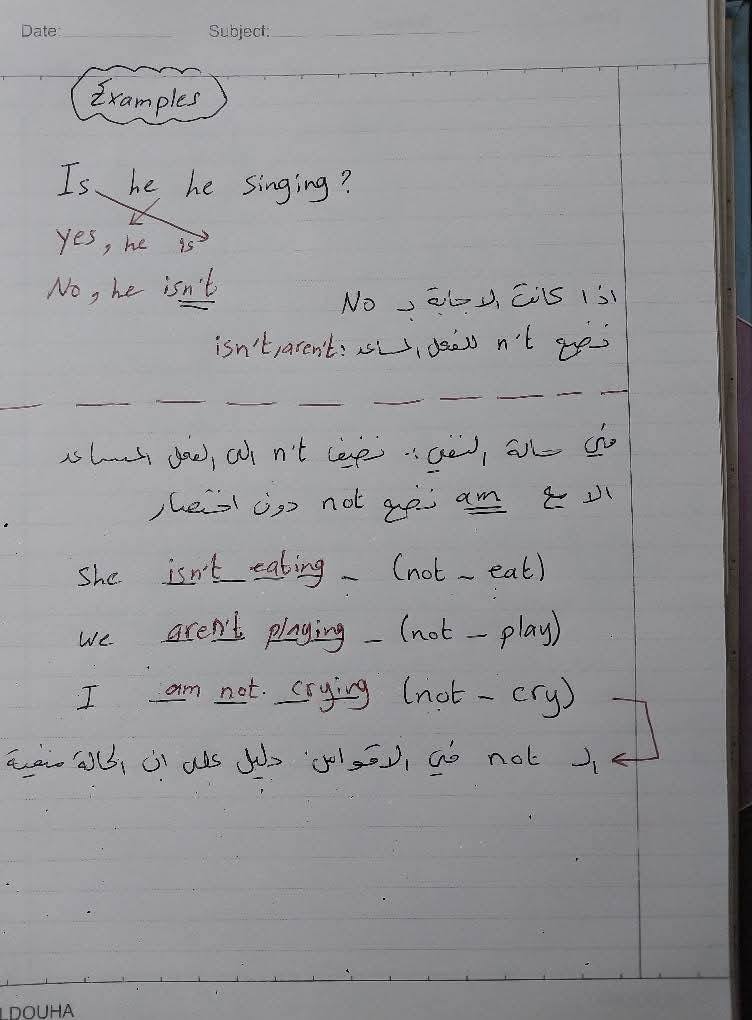 Date: Subject:
Examples
Is he he singing?
yes, he is
No, he isn't
اذا كانت الاجابة بـ No
نضع n't للفعل المساعد: isn't, aren't
في حالة النفي: نضيف n't الى الفعل المساعد
الا مع am نضع not دون اختصار
She isn't eating - (not - eat)
we aren't playing - (not - play)
I am not. crying (not - cry)
الـ not في الاقواس دليل على ان الحالة منفية
LDOUHA